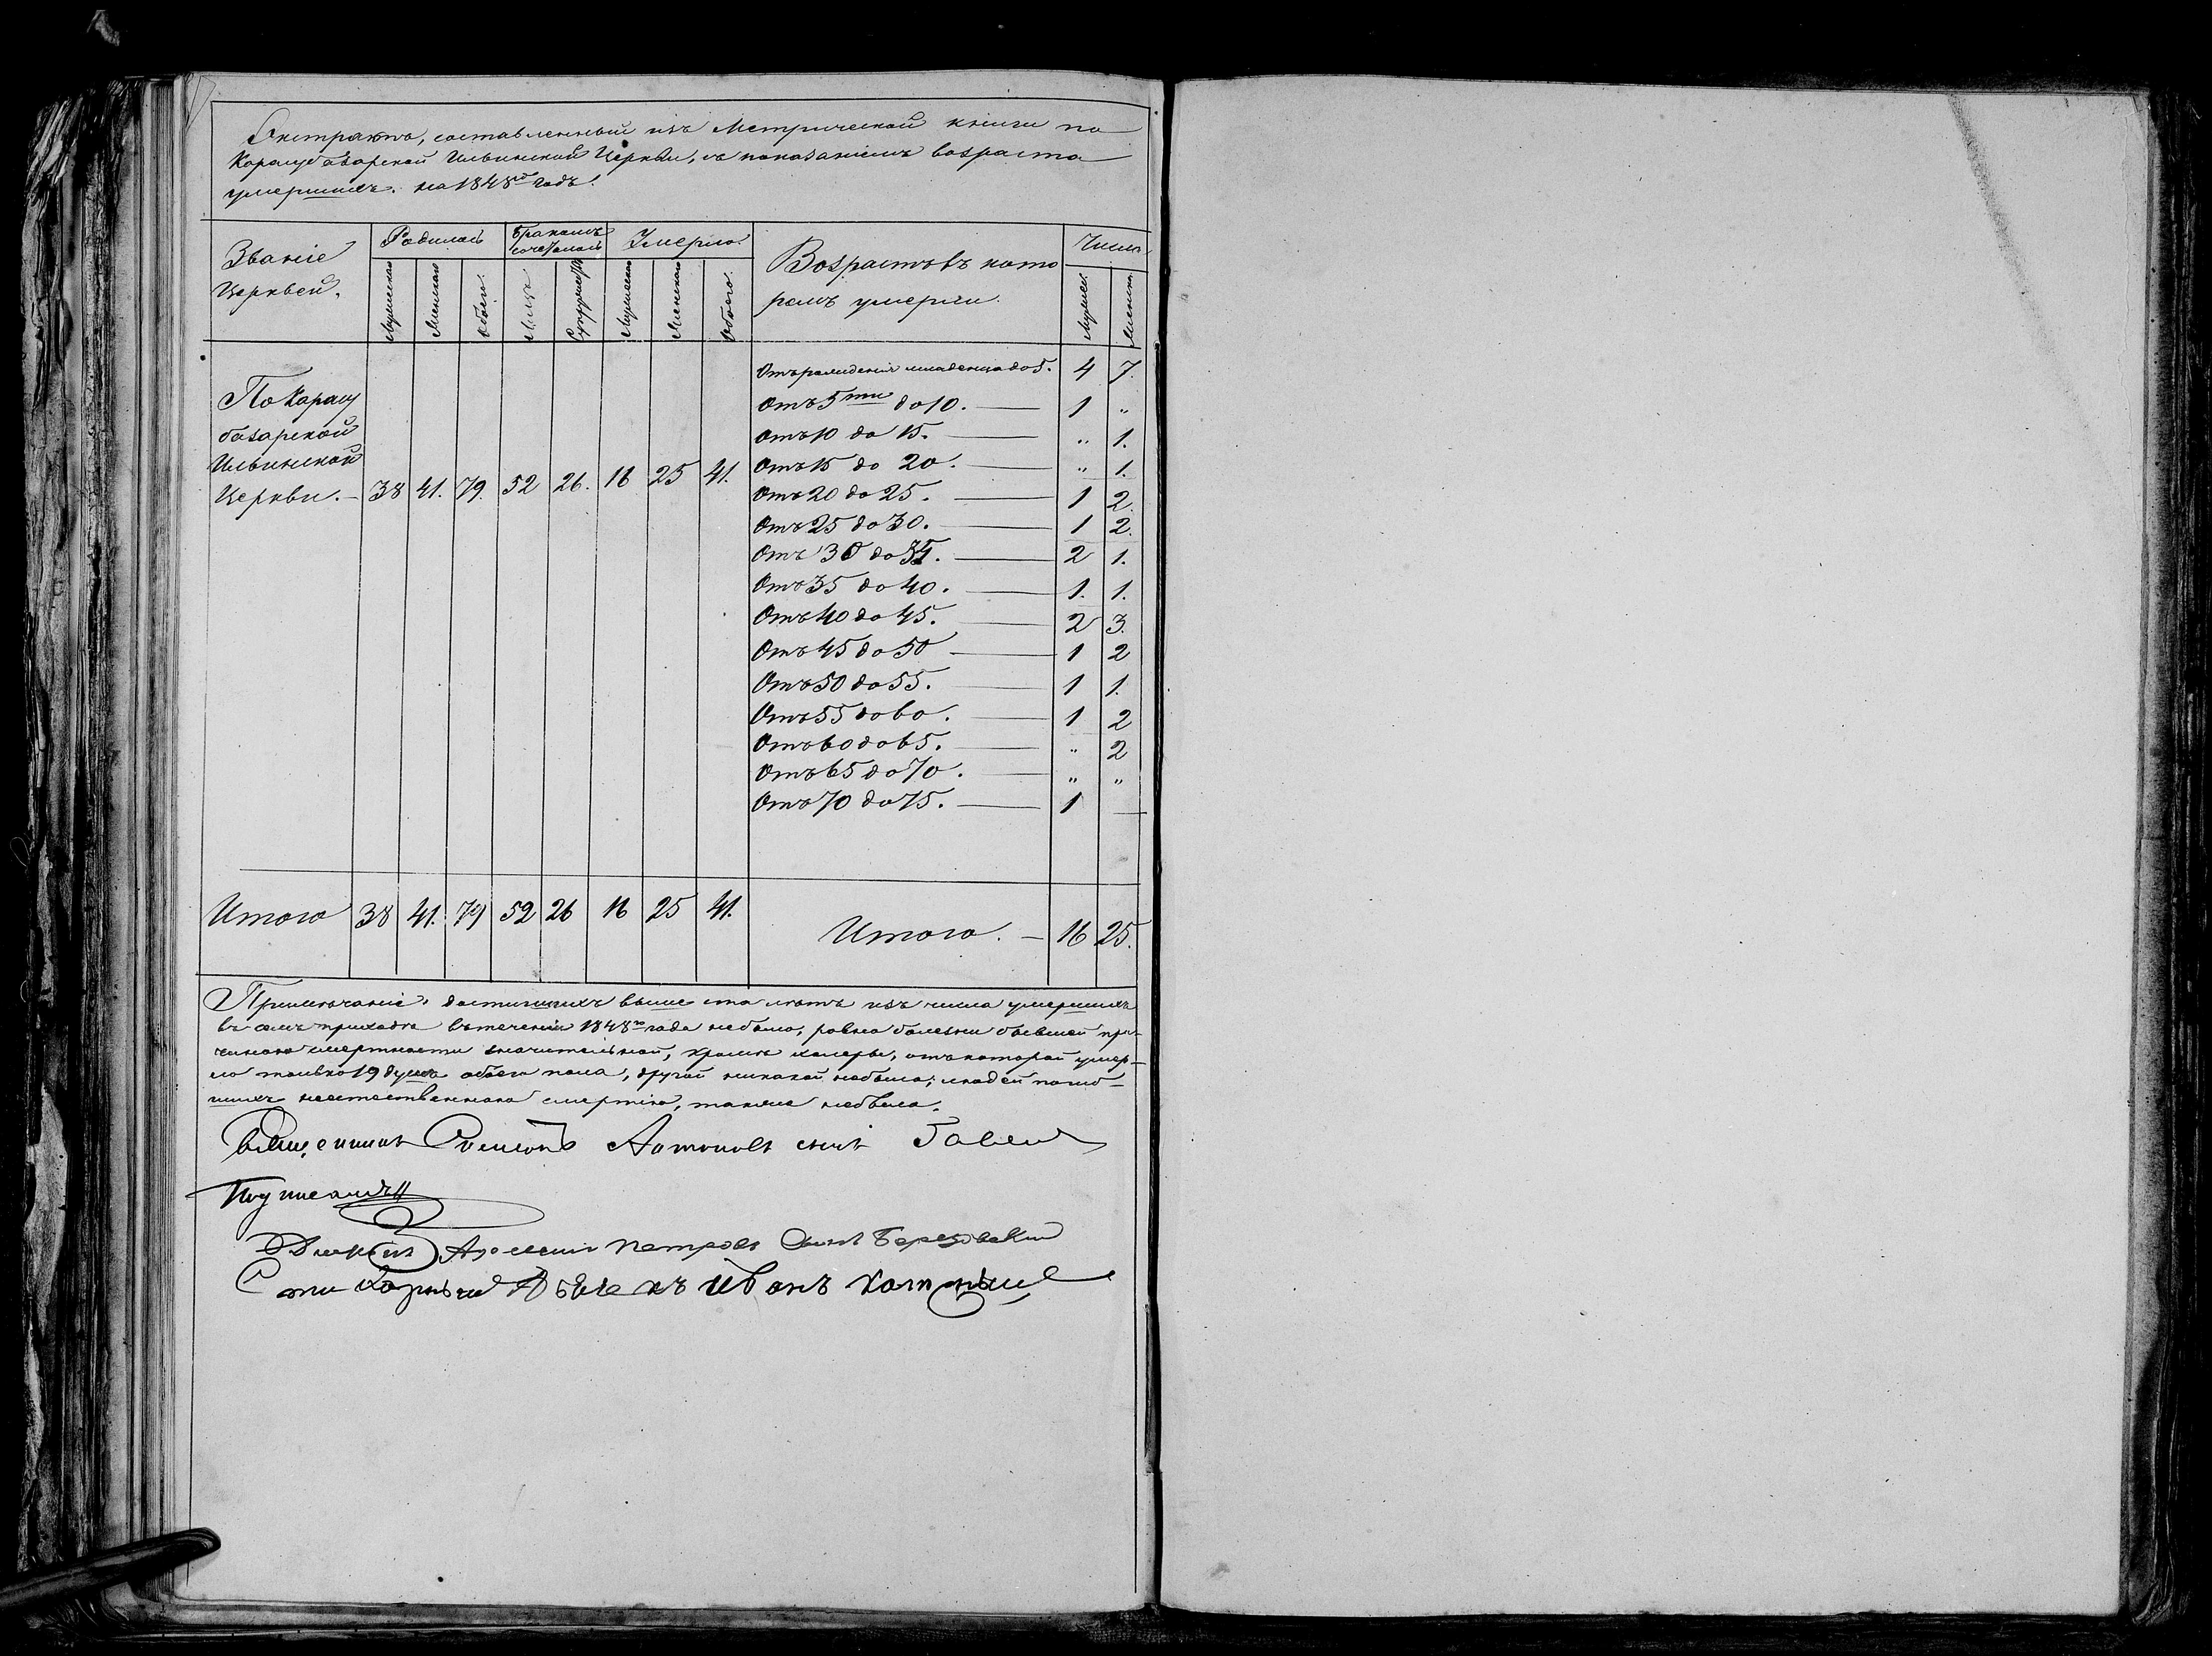 Екстрактъ, составленный изъ Метрической книги по
Карасубазарской Ильинской Церкви, съ показаніемъ возраста
умершихъ. на 1848й годъ.
Званіе Церквей.
Родилось
Бракомъ сочеталось
Умерло.
Возрастъ въ кото
ромъ умерли.
Число
Мужеска
Женска
Обоего.
Лицъ
Супружествъ
Мужеска
Женска
Обоего.
Мужеск.
Женска
По Карасу
базарской
Ильинской
Церкви. — 38 41. 79. 52 26. 16 25 41.
Отъ рожденія младенца до 5. 4 7.
Отъ 5ти до 10. — 1 „
Отъ 10 до 15. — „ 1.
Отъ 15 до 20. — „ 1.
Отъ 20 до 25. — 1 2.
Отъ 25 до 30. — 1 2.
Отъ 30 до 35. — 2 1.
Отъ 35 до 40. — 1. 1.
Отъ 40 до 45. — 2 3.
Отъ 45 до 50 — 1 2
Отъ 50 до 55. — 1 1.
Отъ 55 до 60. — 1 2
Отъ 60 до 65. — „ 2
Отъ 65 до 70. — „ „
Отъ 70 до 75. — 1 —
Итого 38 41. 79 52 26 16 25 41.
Итого. — 16 25.
Примѣчаніе. достигшихъ выше ста лѣтъ изъ числа умершихъ
въ семъ приходѣ въ теченіи 1848го года небыло, равно болезни бывшей при-
чиною смертности значительной, кромѣ холеры, отъ которой умер-
ло только 19 душъ обоего пола, другой никакой небыло; людей погиб-
шихъ неестественною смертію, также небыло.
Священникъ Антоновъ сынъ
Подписалъ
Петровъ Сынъ Березовскій
Иванъ